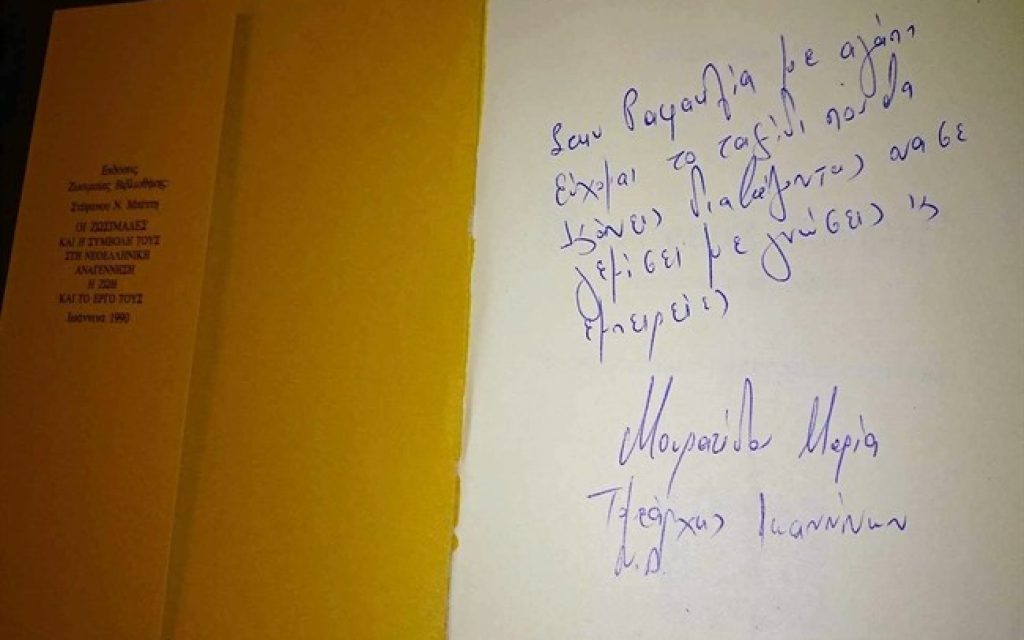 Εκδόσεις
Ζωσιμαίας Βιβλιοθήκης:
Στέφανου Ν. Μπέττη
ΟΙ ΖΩΣΙΜΑΔΕΣ
ΚΑΙ Η ΣΥΜΒΟΛΗ ΤΟΥΣ
ΣΤΗ ΝΕΟΕΛΛΗΝΙΚΗ
ΑΝΑΓΕΝΝΗΣΗ
Η ΖΩΗ
ΚΑΙ ΤΟ ΕΡΓΟ ΤΟΥΣ
Ιωάννινα 1990
Στην Ραφαηλία με αγάπη
Εύχομαι το ταξίδι που θα
κάνεις διαβάζοντας να σε
γεμίσει με γνώσεις κ
εμπειρίες
Μουρατίδου Μαρία
Τομεάρχης Ιωαννίνων